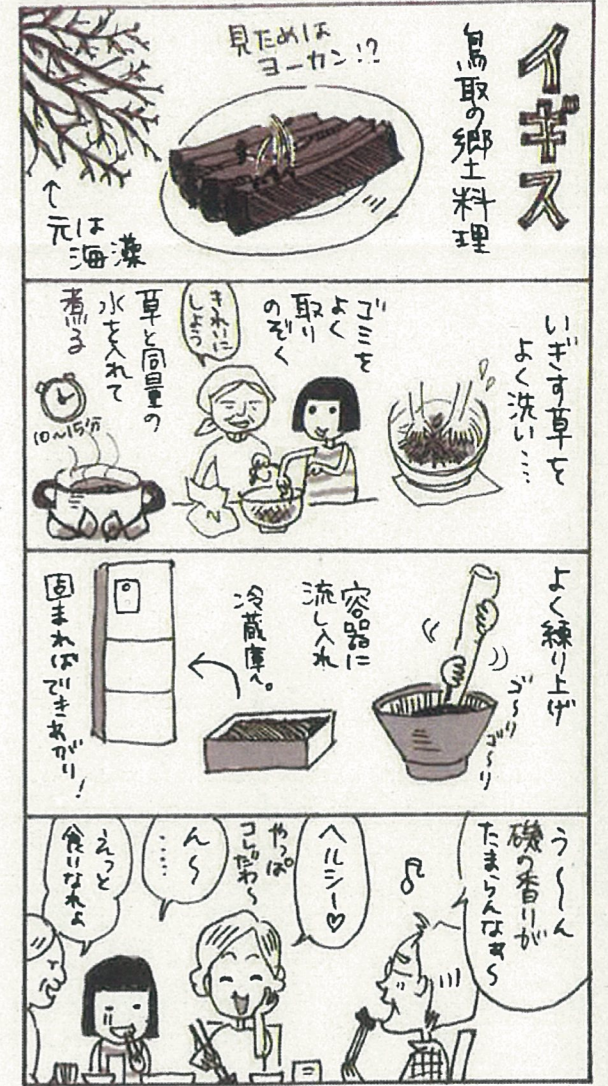 イギス
鳥取の郷土料理
見ためは
ヨーカン!?
↑
元は
海藻
いぎす草を
よく洗い…
ゴミを
よく
取り
のぞく
きれいに
しよう
草と同量の
水を入れて
煮る
10〜15分
よく練り上げ
ゴ〜リ
ゴ〜リ
容器に
流し入れ
冷蔵庫へ。
固まればできあがり!
う〜〜ん
磯の香りが
たまらんなぁ〜
ヘルシー♡
やっぱ
コレだわ〜
ん〜
……
えっと
食いなれよ